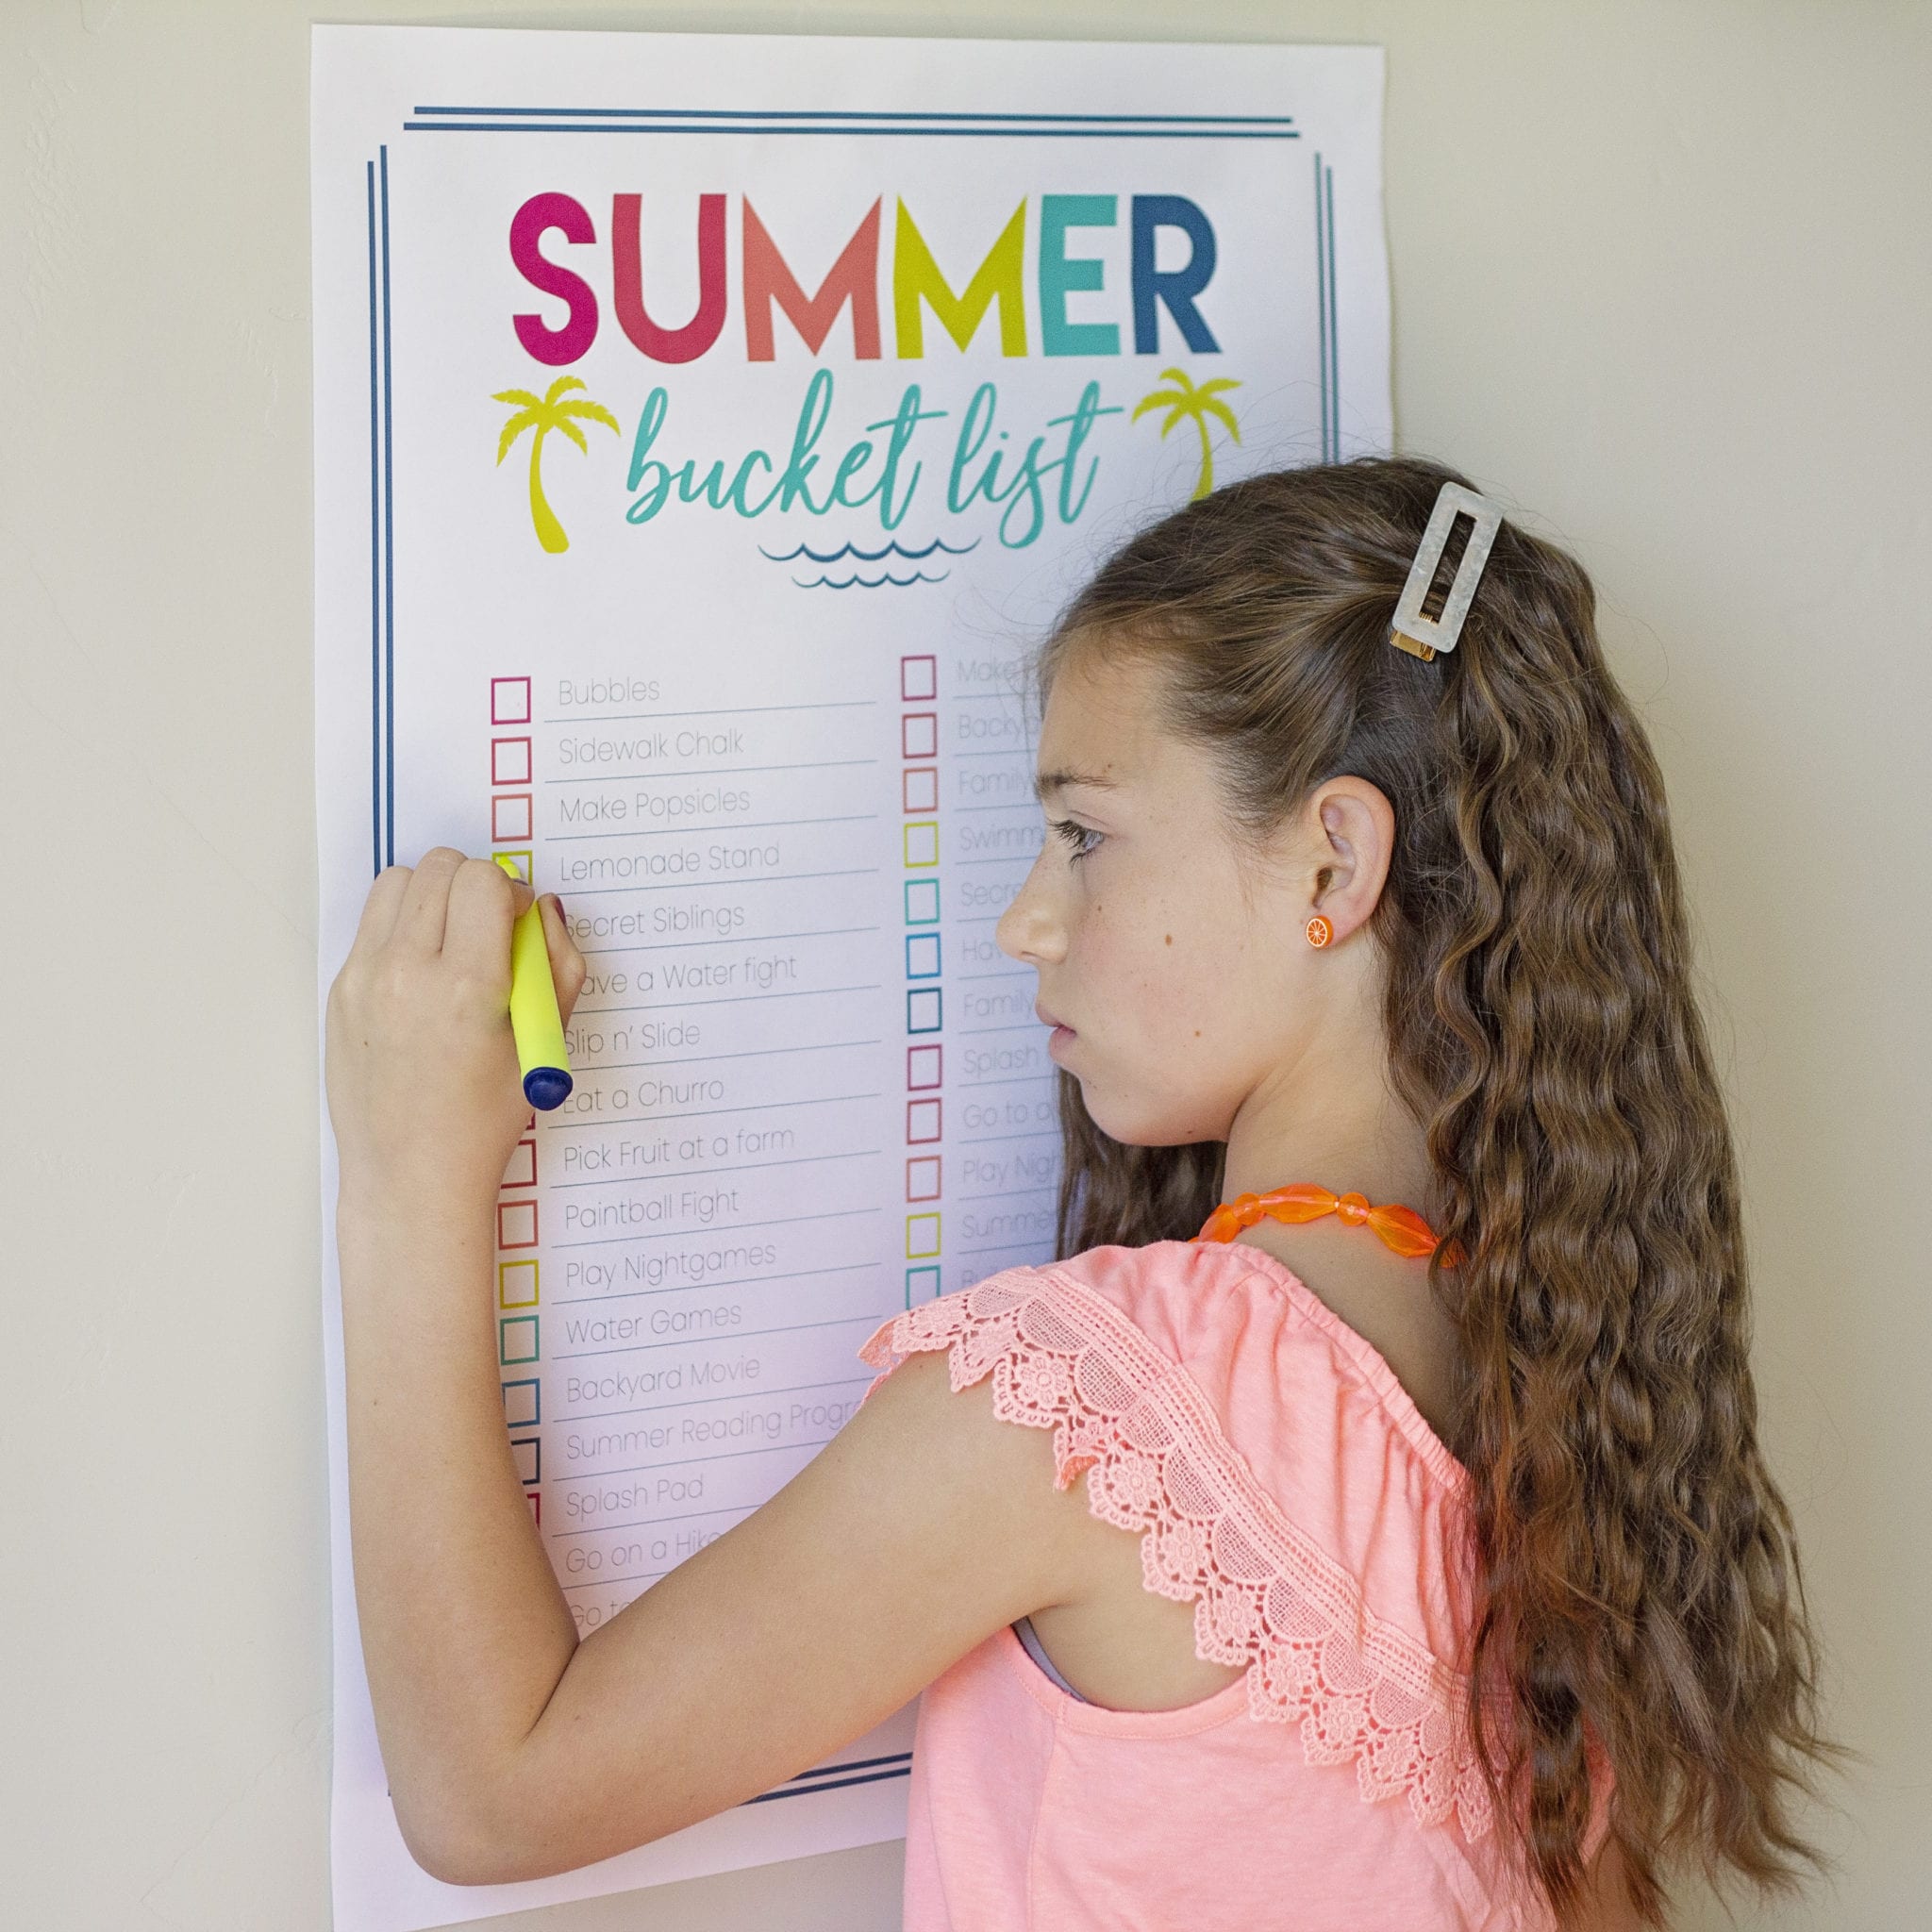 SUMMER
bucket list
Bubbles
Sidewalk Chalk
Make Popsicles
Lemonade Stand
Secret Siblings
ave a Water fight
Slip n' Slide
Eat a Churro
Pick Fruit at a farm
Paintball Fight
Play Nightgames
Water Games
Backyard Movie
Summer Reading Progr
Splash Pad
Go on a Hike
Go to
Make
Backya
Family
Swimm
Secre
Hav
Family
Splash
Go to a
Play Nigh
Summe